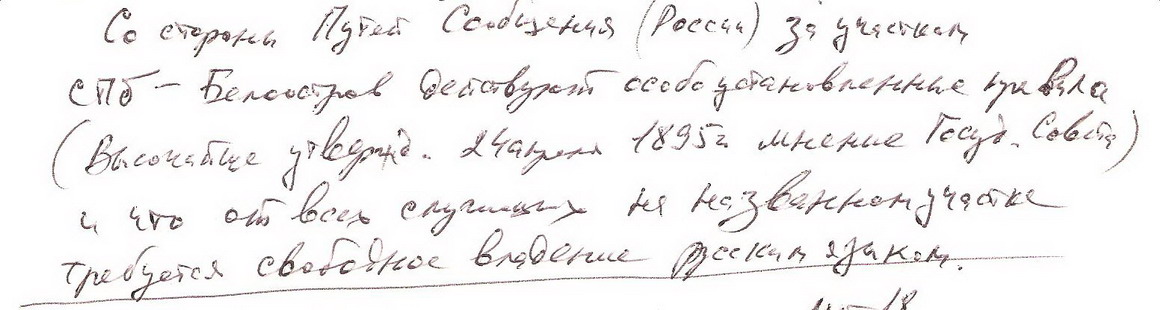 Со стороны Путей Сообщения (России) за участком
СПб – Белоостров действуют особо установленные правила
(Высочайше утвержд. 24 апреля 1895 г. мнение Госуд. Совета)
и что от всех служащих на названном участке
требуется свободное владение русским языком.